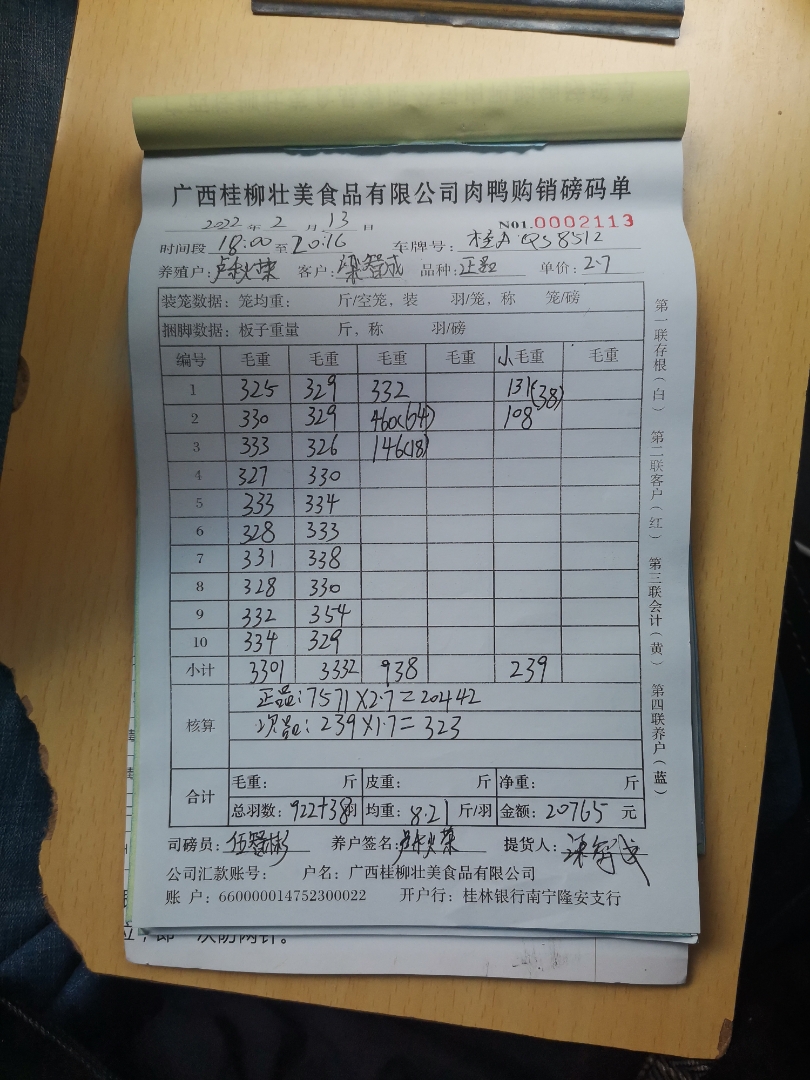 广西桂柳壮美食品有限公司肉鸭购销磅码单
2022年2月13日 NO1.0002113
时间段 18:00至20:16 车牌号: 桂A Q38512
养殖户: 客户:梁智成 品种:正品 单价:2.7
装笼数据:笼均重: 斤/空笼,装 羽/笼,称 笼/磅
捆脚数据:板子重量 斤,称 羽/磅
编号 毛重 毛重 毛重 毛重 小毛重 毛重
1 325 329 332 131(38)
2 330 329 460(64) 108
3 333 326 146(18)
4 327 330
5 333 334
6 328 333
7 331 338
8 328 330
9 332 354
10 334 329
小计 3301 3332 938 239
核算 正品:7571×2.7=20442
次品:239×1.7=323
合计 毛重: 斤 皮重: 斤 净重: 斤
总羽数:922+38羽 均重:8.21斤/羽 金额:20765元
司磅员: 养户签名: 提货人:
公司汇款账号: 户名:广西桂柳壮美食品有限公司
账 户:660000014752300022 开户行:桂林银行南宁隆安支行
第一联存根(白) 第二联客户(红) 第三联会计(黄) 第四联养户(蓝)